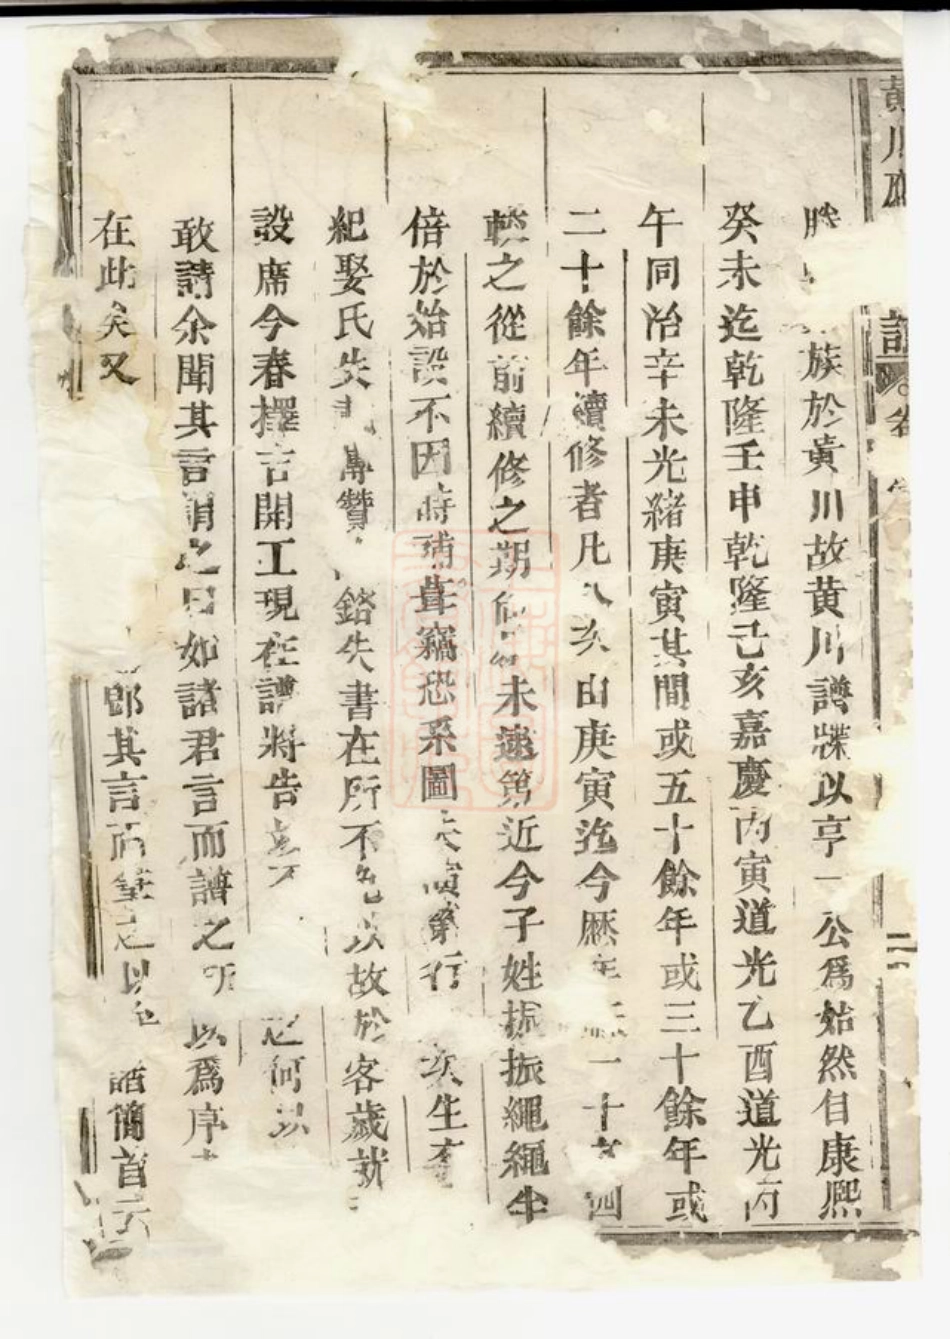 黃川 譜 卷 二
族於黃川故黃川譜牒以亨一公爲始然自康熙
癸未迄乾隆壬申乾隆己亥嘉慶丙寅道光乙酉道光丙
午同治辛未光緒庚寅其間或五十餘年或三十餘年或
二十餘年續修者凡八次由庚寅迄今歷年 一十 四
輕之從前續修之期 未遠第近今子姓振振繩繩生
倍於始設不因時補葺竊恐系圖失 第行 次生
紀娶氏失 贊 銘失書在所不免以故於客歲就
設席今春擇吉開工現在譜將告 何以
敢請余聞其言謂之曰如諸君言而譜之所以爲序
在此矣又 郎其言而筆之以 諸簡首云